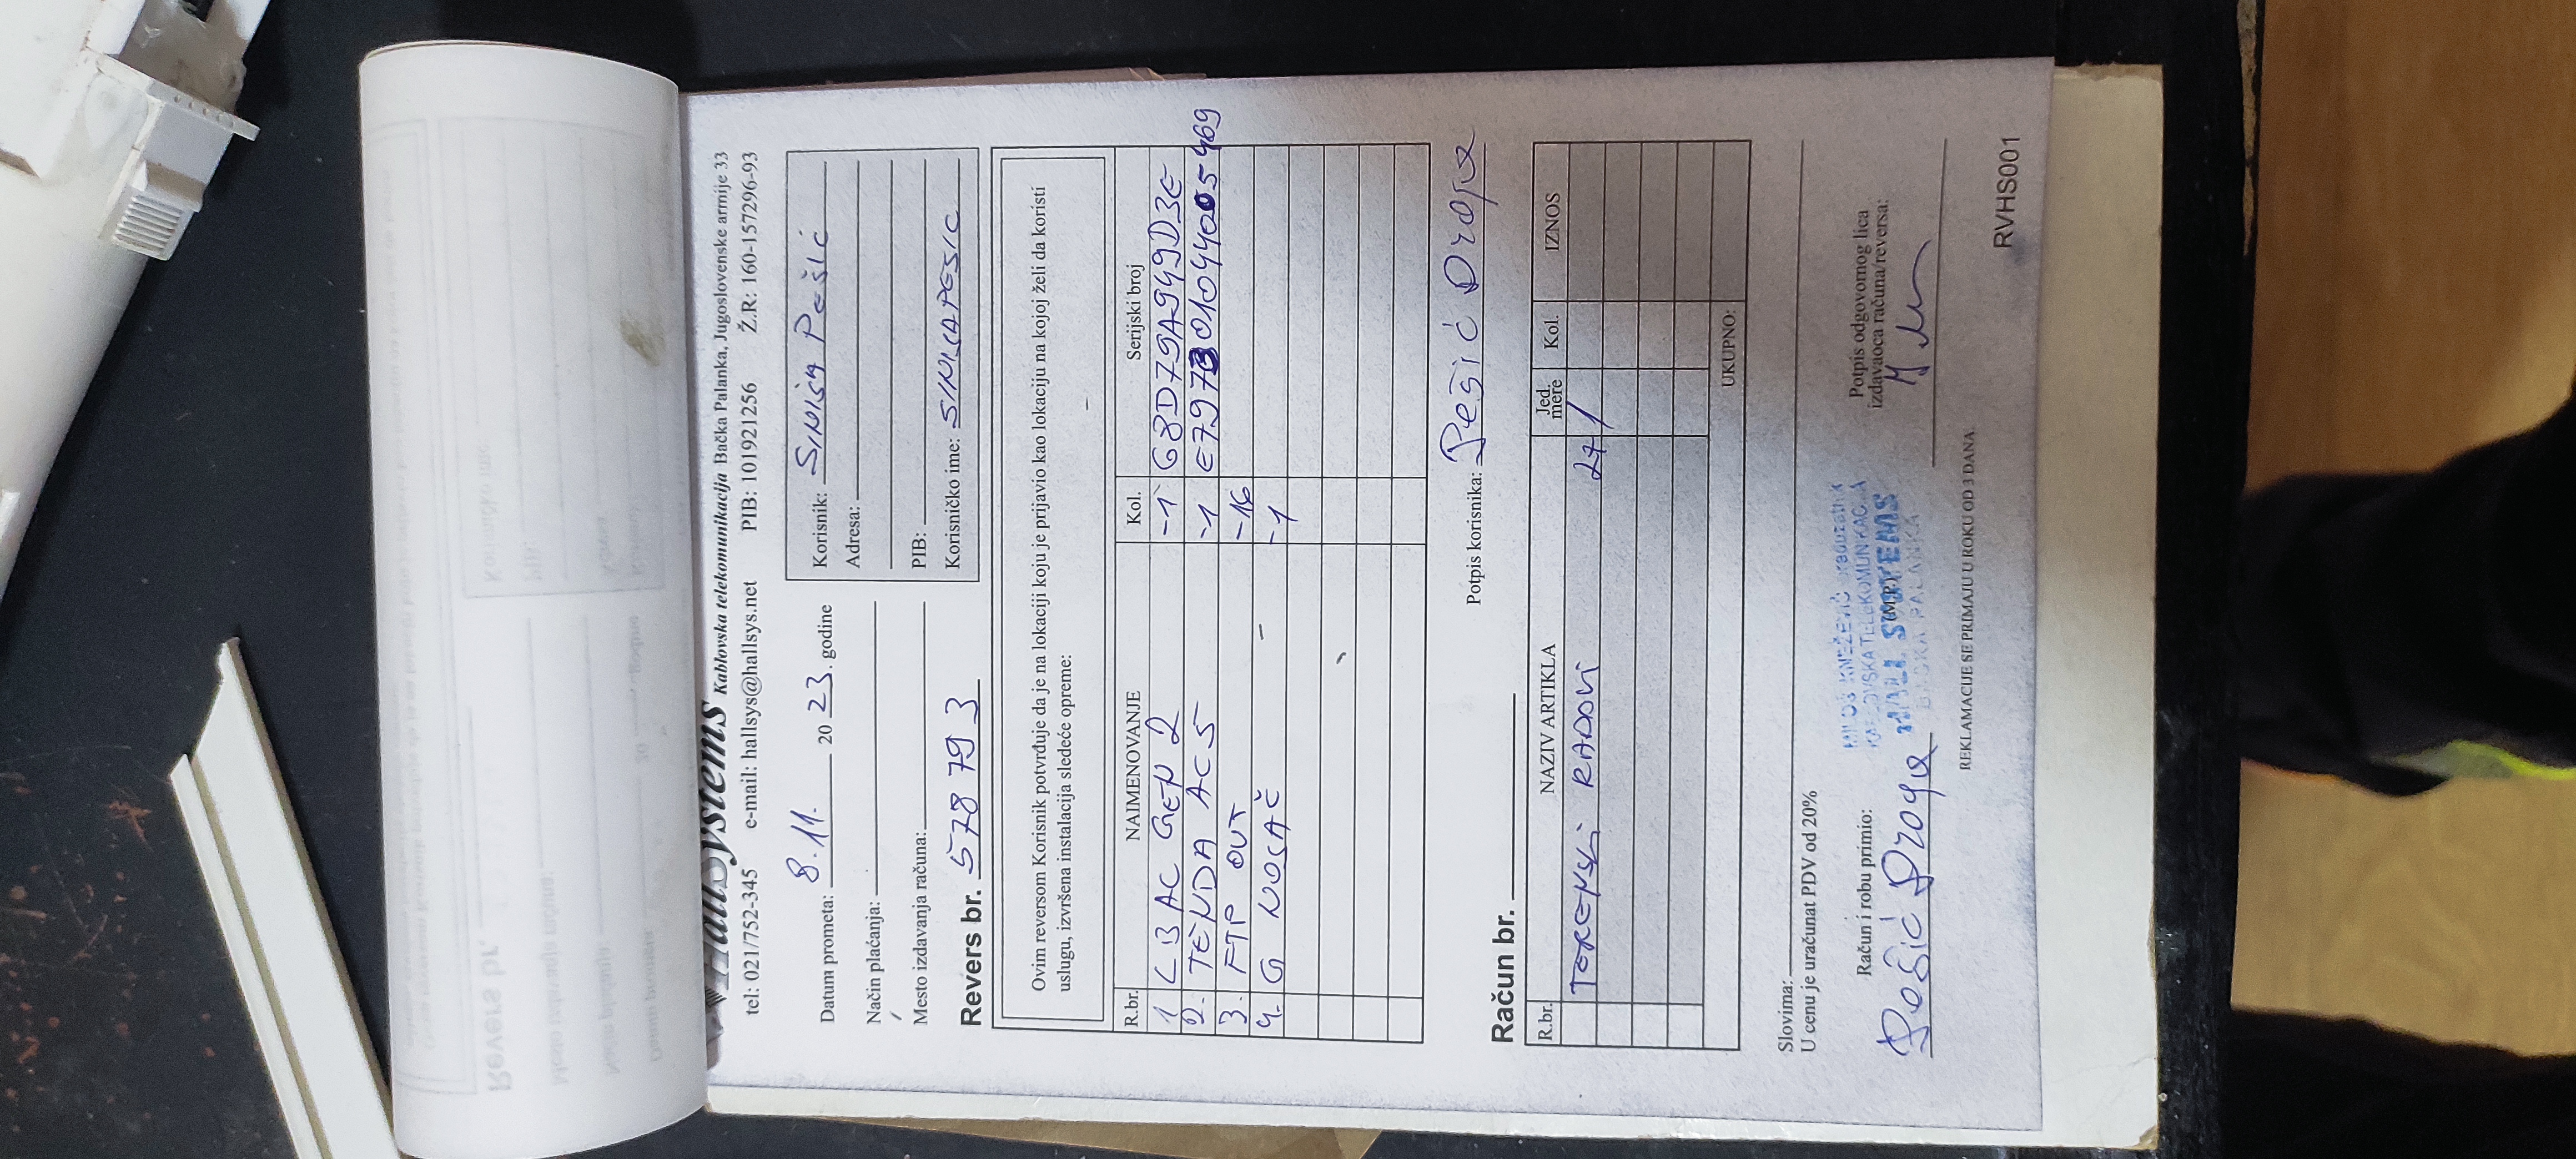 HallSystems Kablovska telekomunikacija Bačka Palanka, Jugoslovenske armije 33
tel: 021/752-345 e-mail: hallsys@hallsys.net PIB: 101921256 Ž.R: 160-157296-93
Datum prometa: 8.11. 2023. godine
Način plaćanja:
Mesto izdavanja računa:
Revers br. 578793
Korisnik: Siniša Pešić
Adresa:
PIB:
Korisničko ime: SINISAPESIC
Ovim reversom Korisnik potvrđuje da je na lokaciji koju je prijavio kao lokaciju na kojoj želi da koristi
uslugu, izvršena instalacija sledeće opreme:
R.br. NAIMENOVANJE Kol. Serijski broj
1 LB AC GEN 2 -1 68D79A949D3E
2. TENDA AC5 -1
3. FTP OUT -16
4. G NOSAČ -1
Potpis korisnika: Pešić Draga
Račun br.
R.br. NAZIV ARTIKLA Jed. mere Kol. IZNOS
TERENSKI RADOVI
UKUPNO:
Slovima:
U cenu je uračunat PDV od 20%
Račun i robu primio:
Pešić Draga
MILOŠ KNEŽEVIĆ preduzetnik
KABLOVSKA TELEKOMUNIKACIJA
HALL SYSTEMS
BAČKA PALANKA
(M.P.)
Potpis odgovornog lica
izdavaoca računa/reversa:
REKLAMACIJE SE PRIMAJU U ROKU OD 3 DANA.
RVHS001